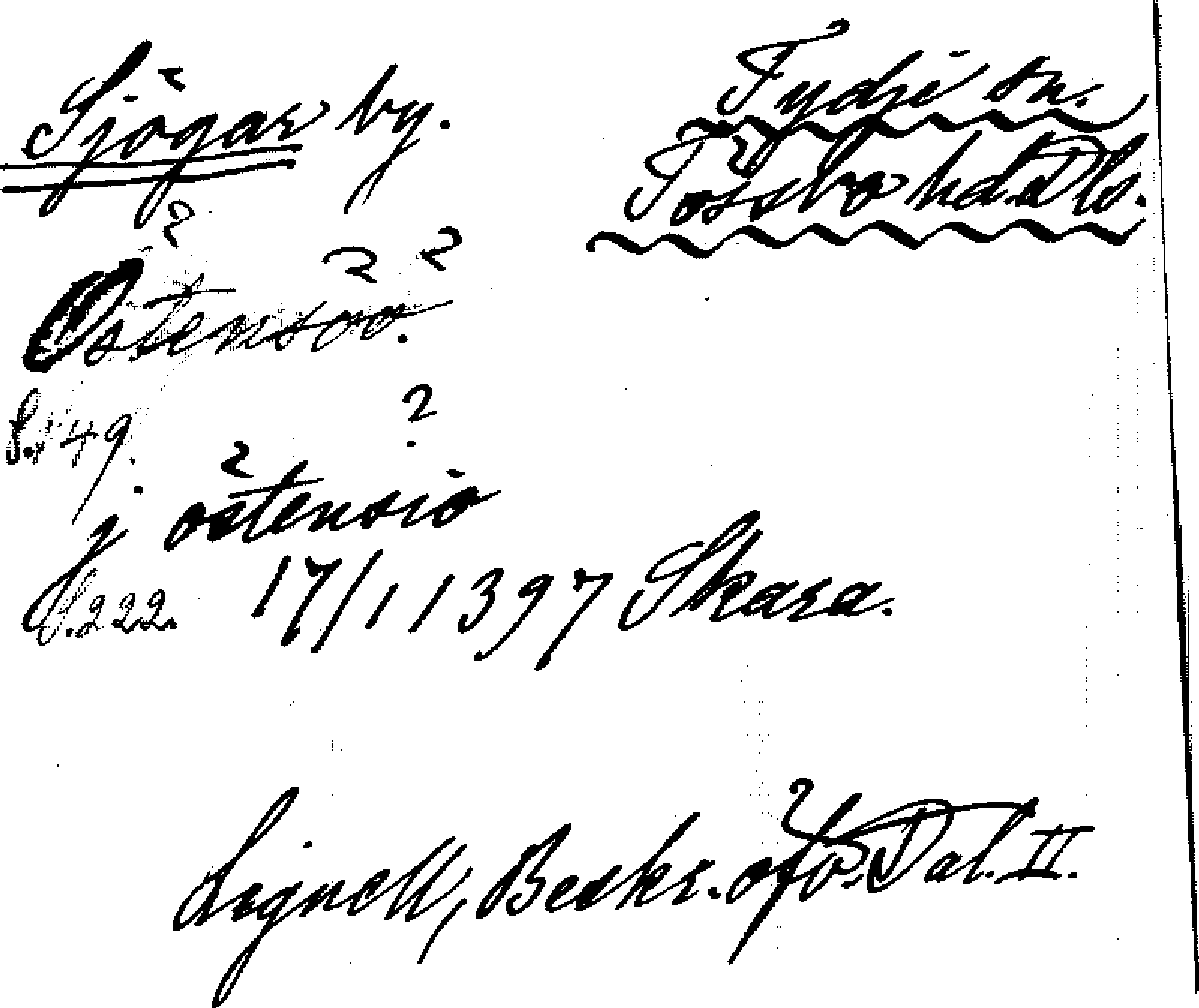 Sjögar by.
Tydje sn.
Tössbo hd. Dls.
Östensöö.
S. 149.
j östensiö
S. 222. 17/1 1397 Skara.
Lignell, Beskr. öfv. Dal. II.